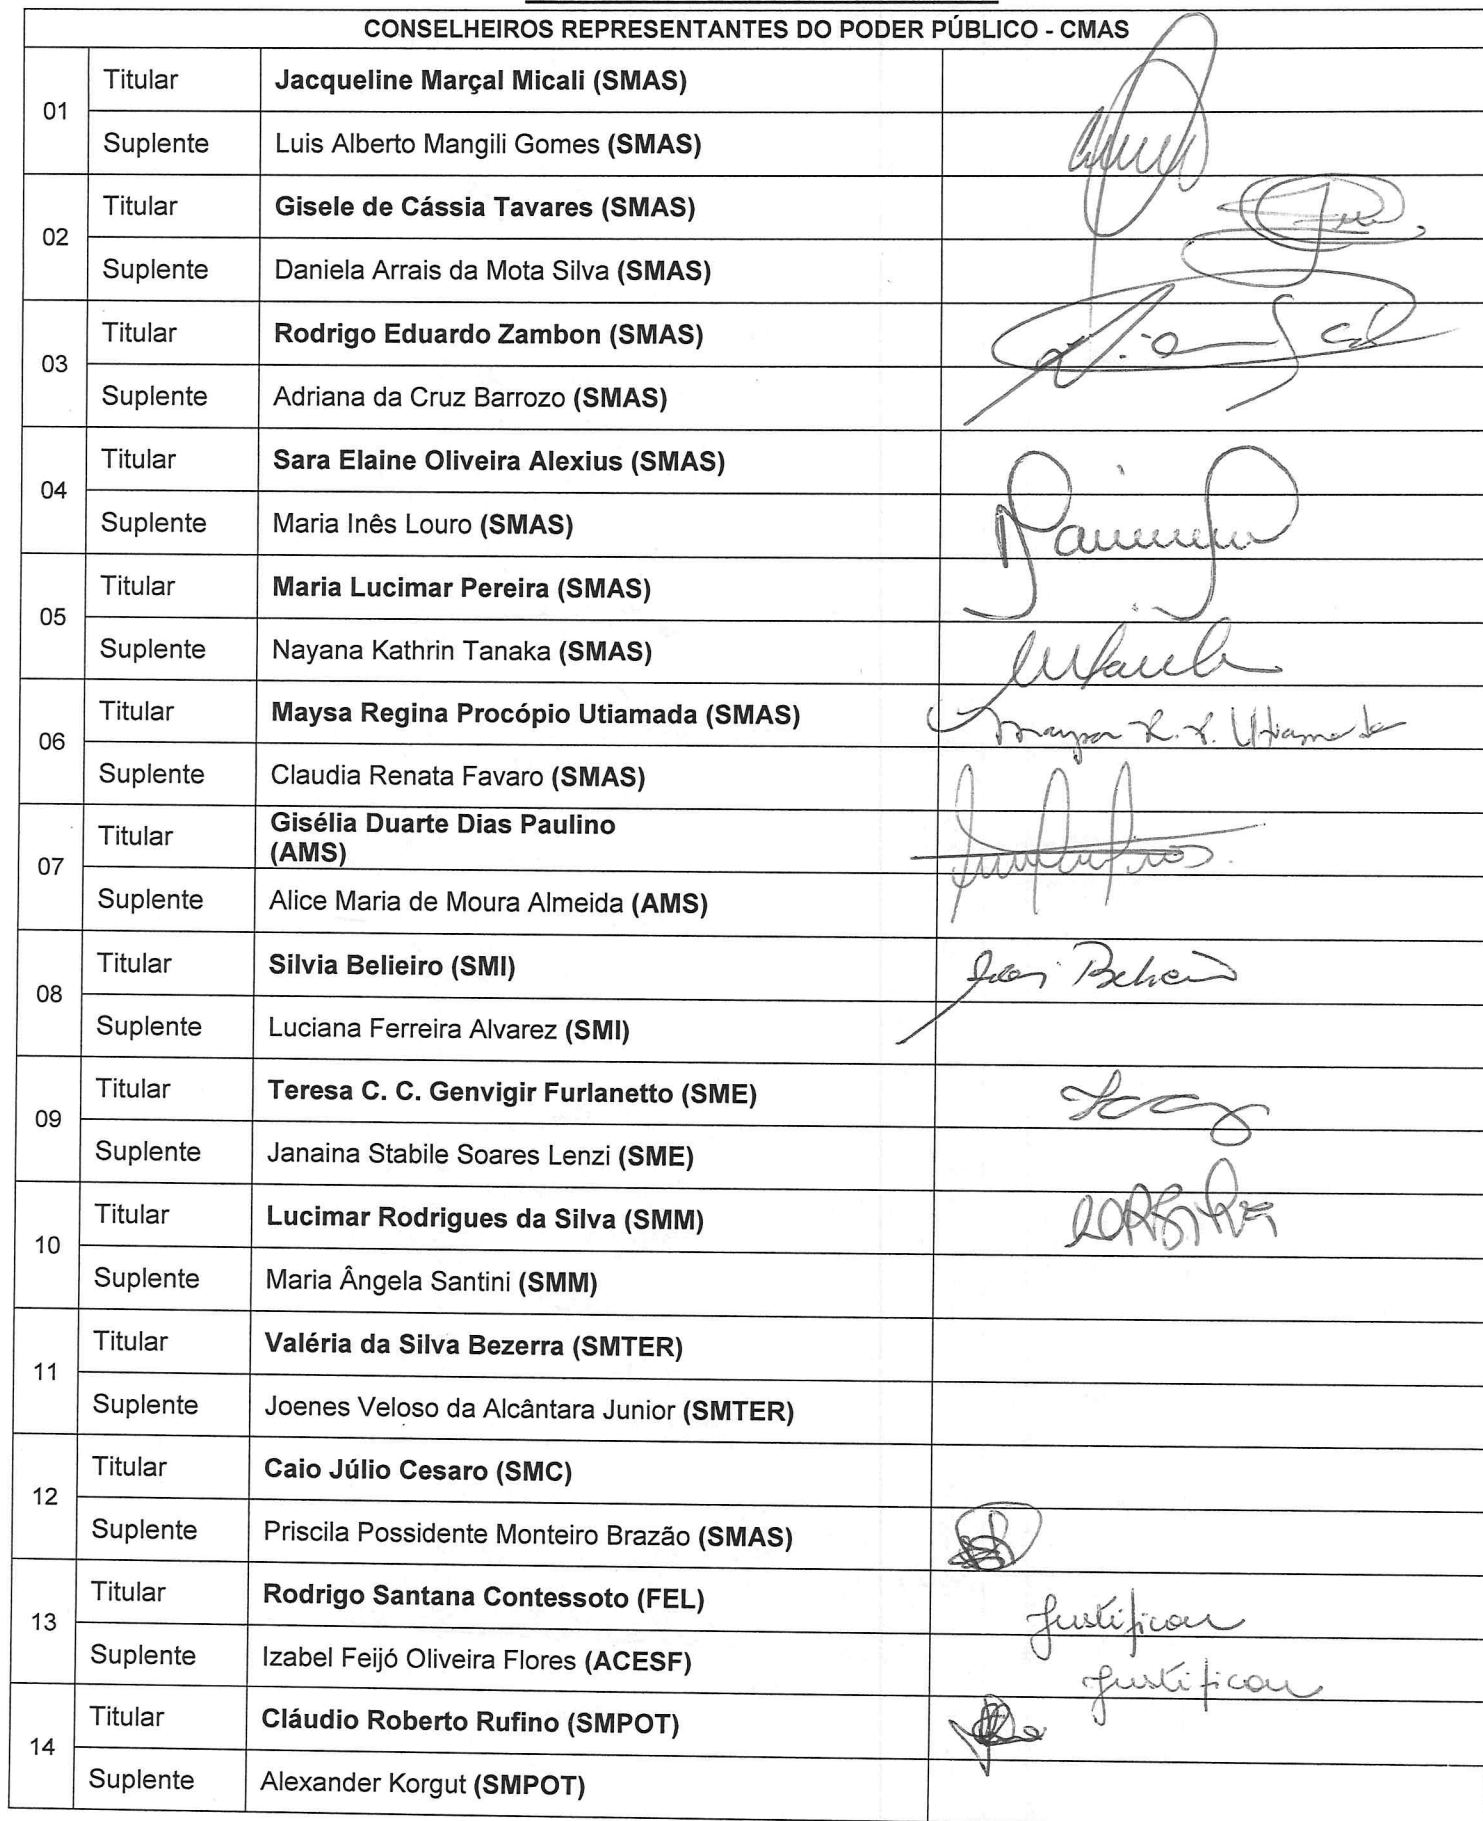 CONSELHEIROS REPRESENTANTES DO PODER PÚBLICO - CMAS
01
Titular Jacqueline Marçal Micali (SMAS)
Suplente Luis Alberto Mangili Gomes (SMAS)
02
Titular Gisele de Cássia Tavares (SMAS)
Suplente Daniela Arrais da Mota Silva (SMAS)
03
Titular Rodrigo Eduardo Zambon (SMAS)
Suplente Adriana da Cruz Barrozo (SMAS)
04
Titular Sara Elaine Oliveira Alexius (SMAS)
Suplente Maria Inês Louro (SMAS)
05
Titular Maria Lucimar Pereira (SMAS)
Suplente Nayana Kathrin Tanaka (SMAS)
06
Titular Maysa Regina Procópio Utiamada (SMAS) Maysa R. P. Utiamada
Suplente Claudia Renata Favaro (SMAS)
07
Titular Gisélia Duarte Dias Paulino
(AMS)
Suplente Alice Maria de Moura Almeida (AMS)
08
Titular Silvia Belieiro (SMI)
Suplente Luciana Ferreira Alvarez (SMI)
09
Titular Teresa C. C. Genvigir Furlanetto (SME)
Suplente Janaina Stabile Soares Lenzi (SME)
10
Titular Lucimar Rodrigues da Silva (SMM)
Suplente Maria Ângela Santini (SMM)
11
Titular Valéria da Silva Bezerra (SMTER)
Suplente Joenes Veloso da Alcântara Junior (SMTER)
12
Titular Caio Júlio Cesaro (SMC)
Suplente Priscila Possidente Monteiro Brazão (SMAS)
13
Titular Rodrigo Santana Contessoto (FEL) Justificou
Suplente Izabel Feijó Oliveira Flores (ACESF) Justificou
14
Titular Cláudio Roberto Rufino (SMPOT)
Suplente Alexander Korgut (SMPOT)